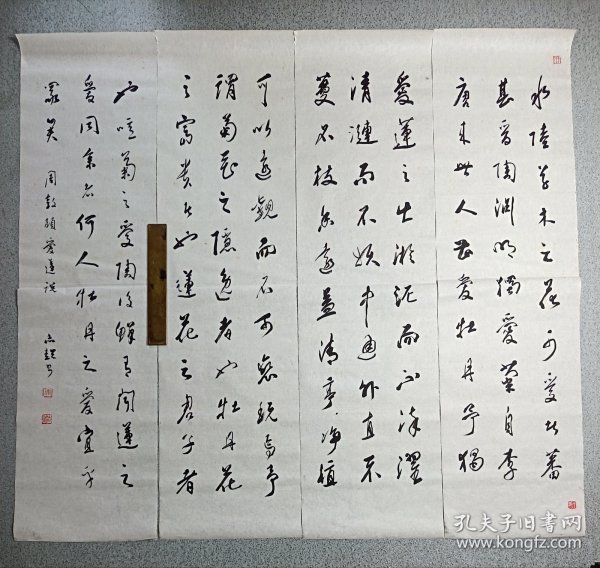 水陸草木之花可愛者蕃
甚多陶淵明獨愛菊自李
唐来世人甚愛牡丹予獨
愛蓮之出淤泥而不染濯
清漣而不妖中通外直不
蔓不枝香遠益清亭〻淨植
可以遠觀而不可褻玩焉予
謂菊花之隱逸者也牡丹花
之富貴者也蓮花之君子者
也噫菊之愛陶後鮮有聞蓮之
愛同余者何人牡丹之愛宜乎
眾矣 周敦頤愛蓮説
孔夫子旧書网
www.kongfz.com